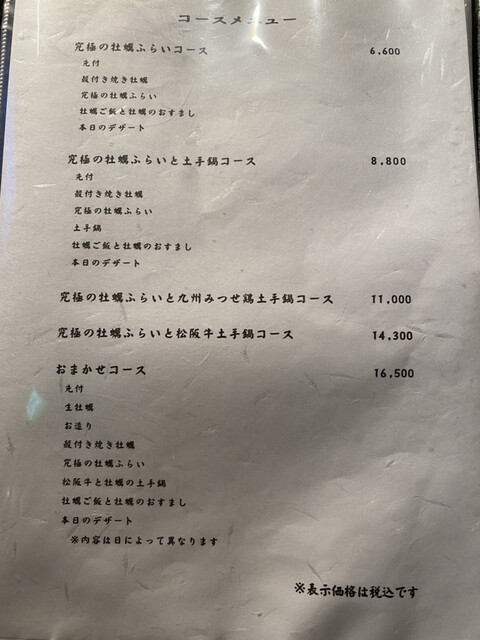 コースメニュー
究極の牡蠣ふらいコース 6,600
先付
殻付き焼き牡蠣
究極の牡蠣ふらい
牡蠣ご飯と牡蠣のおすまし
本日のデザート
究極の牡蠣ふらいと土手鍋コース 8,800
先付
殻付き焼き牡蠣
究極の牡蠣ふらい
土手鍋
牡蠣ご飯と牡蠣のおすまし
本日のデザート
究極の牡蠣ふらいと九州みつせ鶏土手鍋コース 11,000
究極の牡蠣ふらいと松阪牛土手鍋コース 14,300
おまかせコース 16,500
先付
生牡蠣
お造り
殻付き焼き牡蠣
究極の牡蠣ふらい
松阪牛と牡蠣の土手鍋
牡蠣ご飯と牡蠣のおすまし
本日のデザート
※内容は日によって異なります
※表示価格は税込です